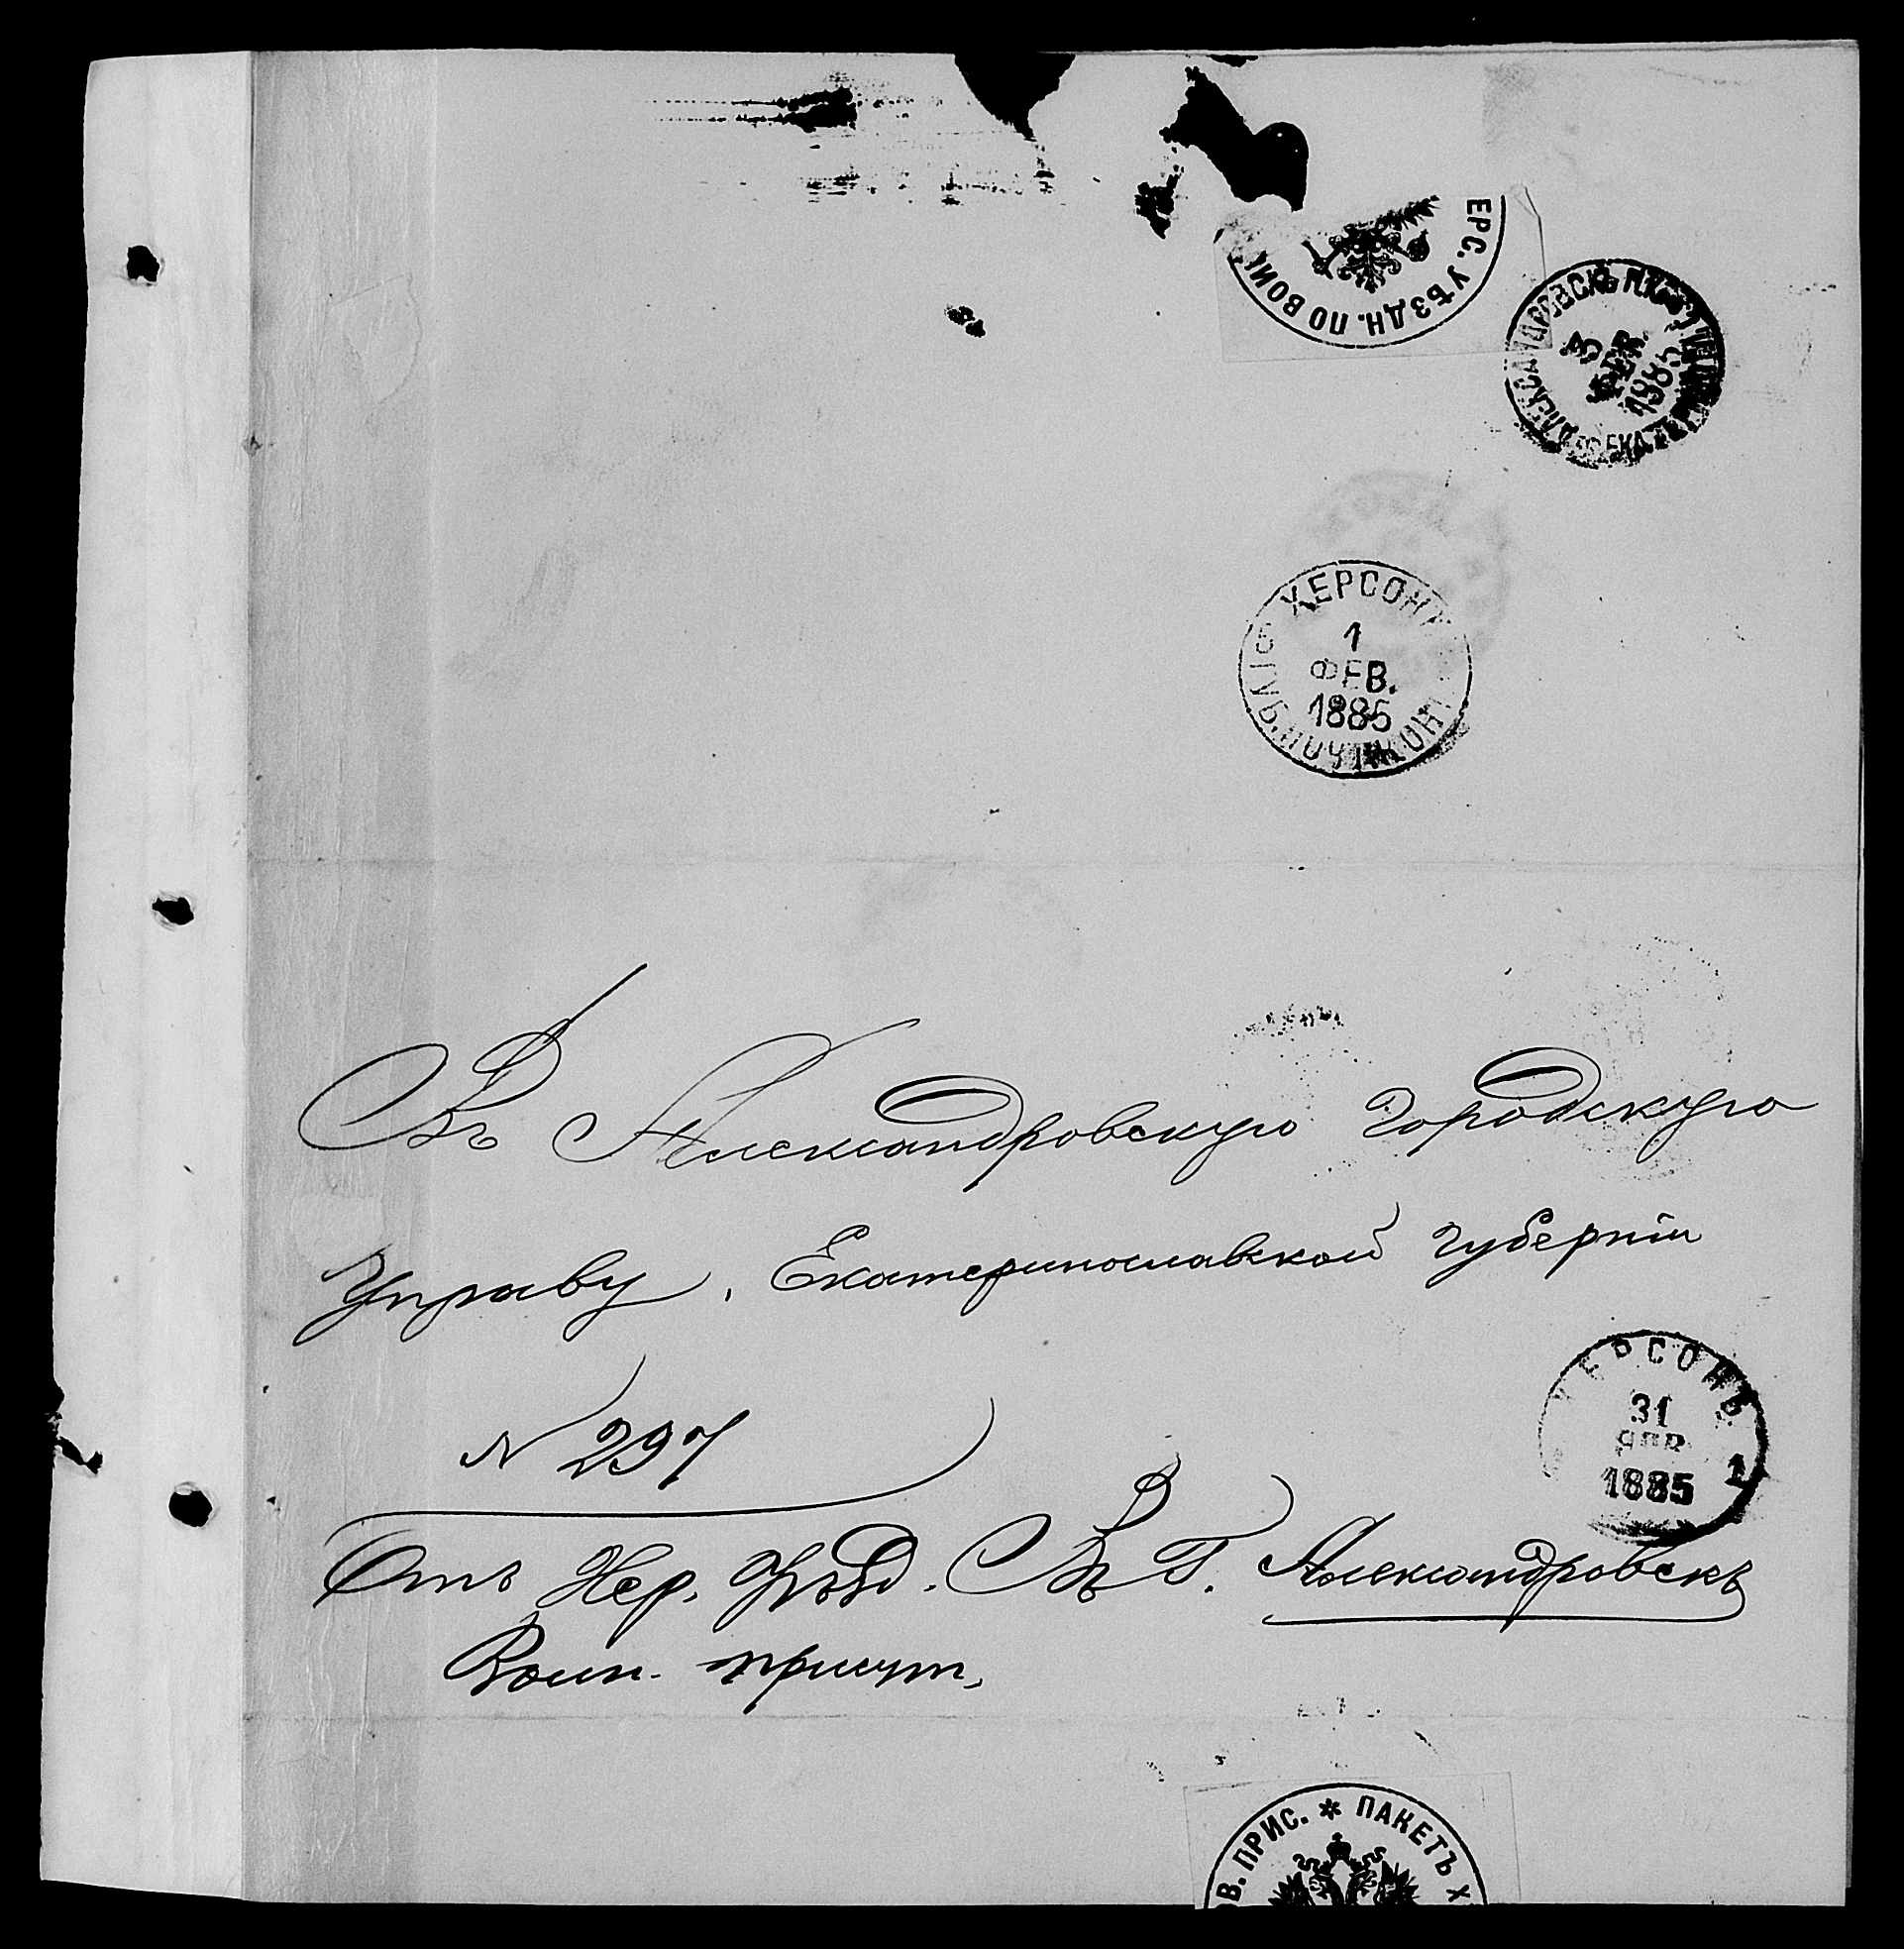 ЕРС. УѢЗДН. ПО ВОИН
АЛЕКСАНДРОВСКЪ
3
ФЕВ.
1885
ХЕРСОНЪ
1
ФЕВ.
1885
ГУБ. ПОЧТ. КОНТ
Въ Александровскую Городскую
Управу, Екатеринославской губерніи
ХЕРСОНЪ
31
ЯНВ
1885
1
N 297
Отъ Хер. Уѣзд. Въ Г. Александровскъ
Воин. присут.
В. ПРИС. * ПАКЕТЪ Х